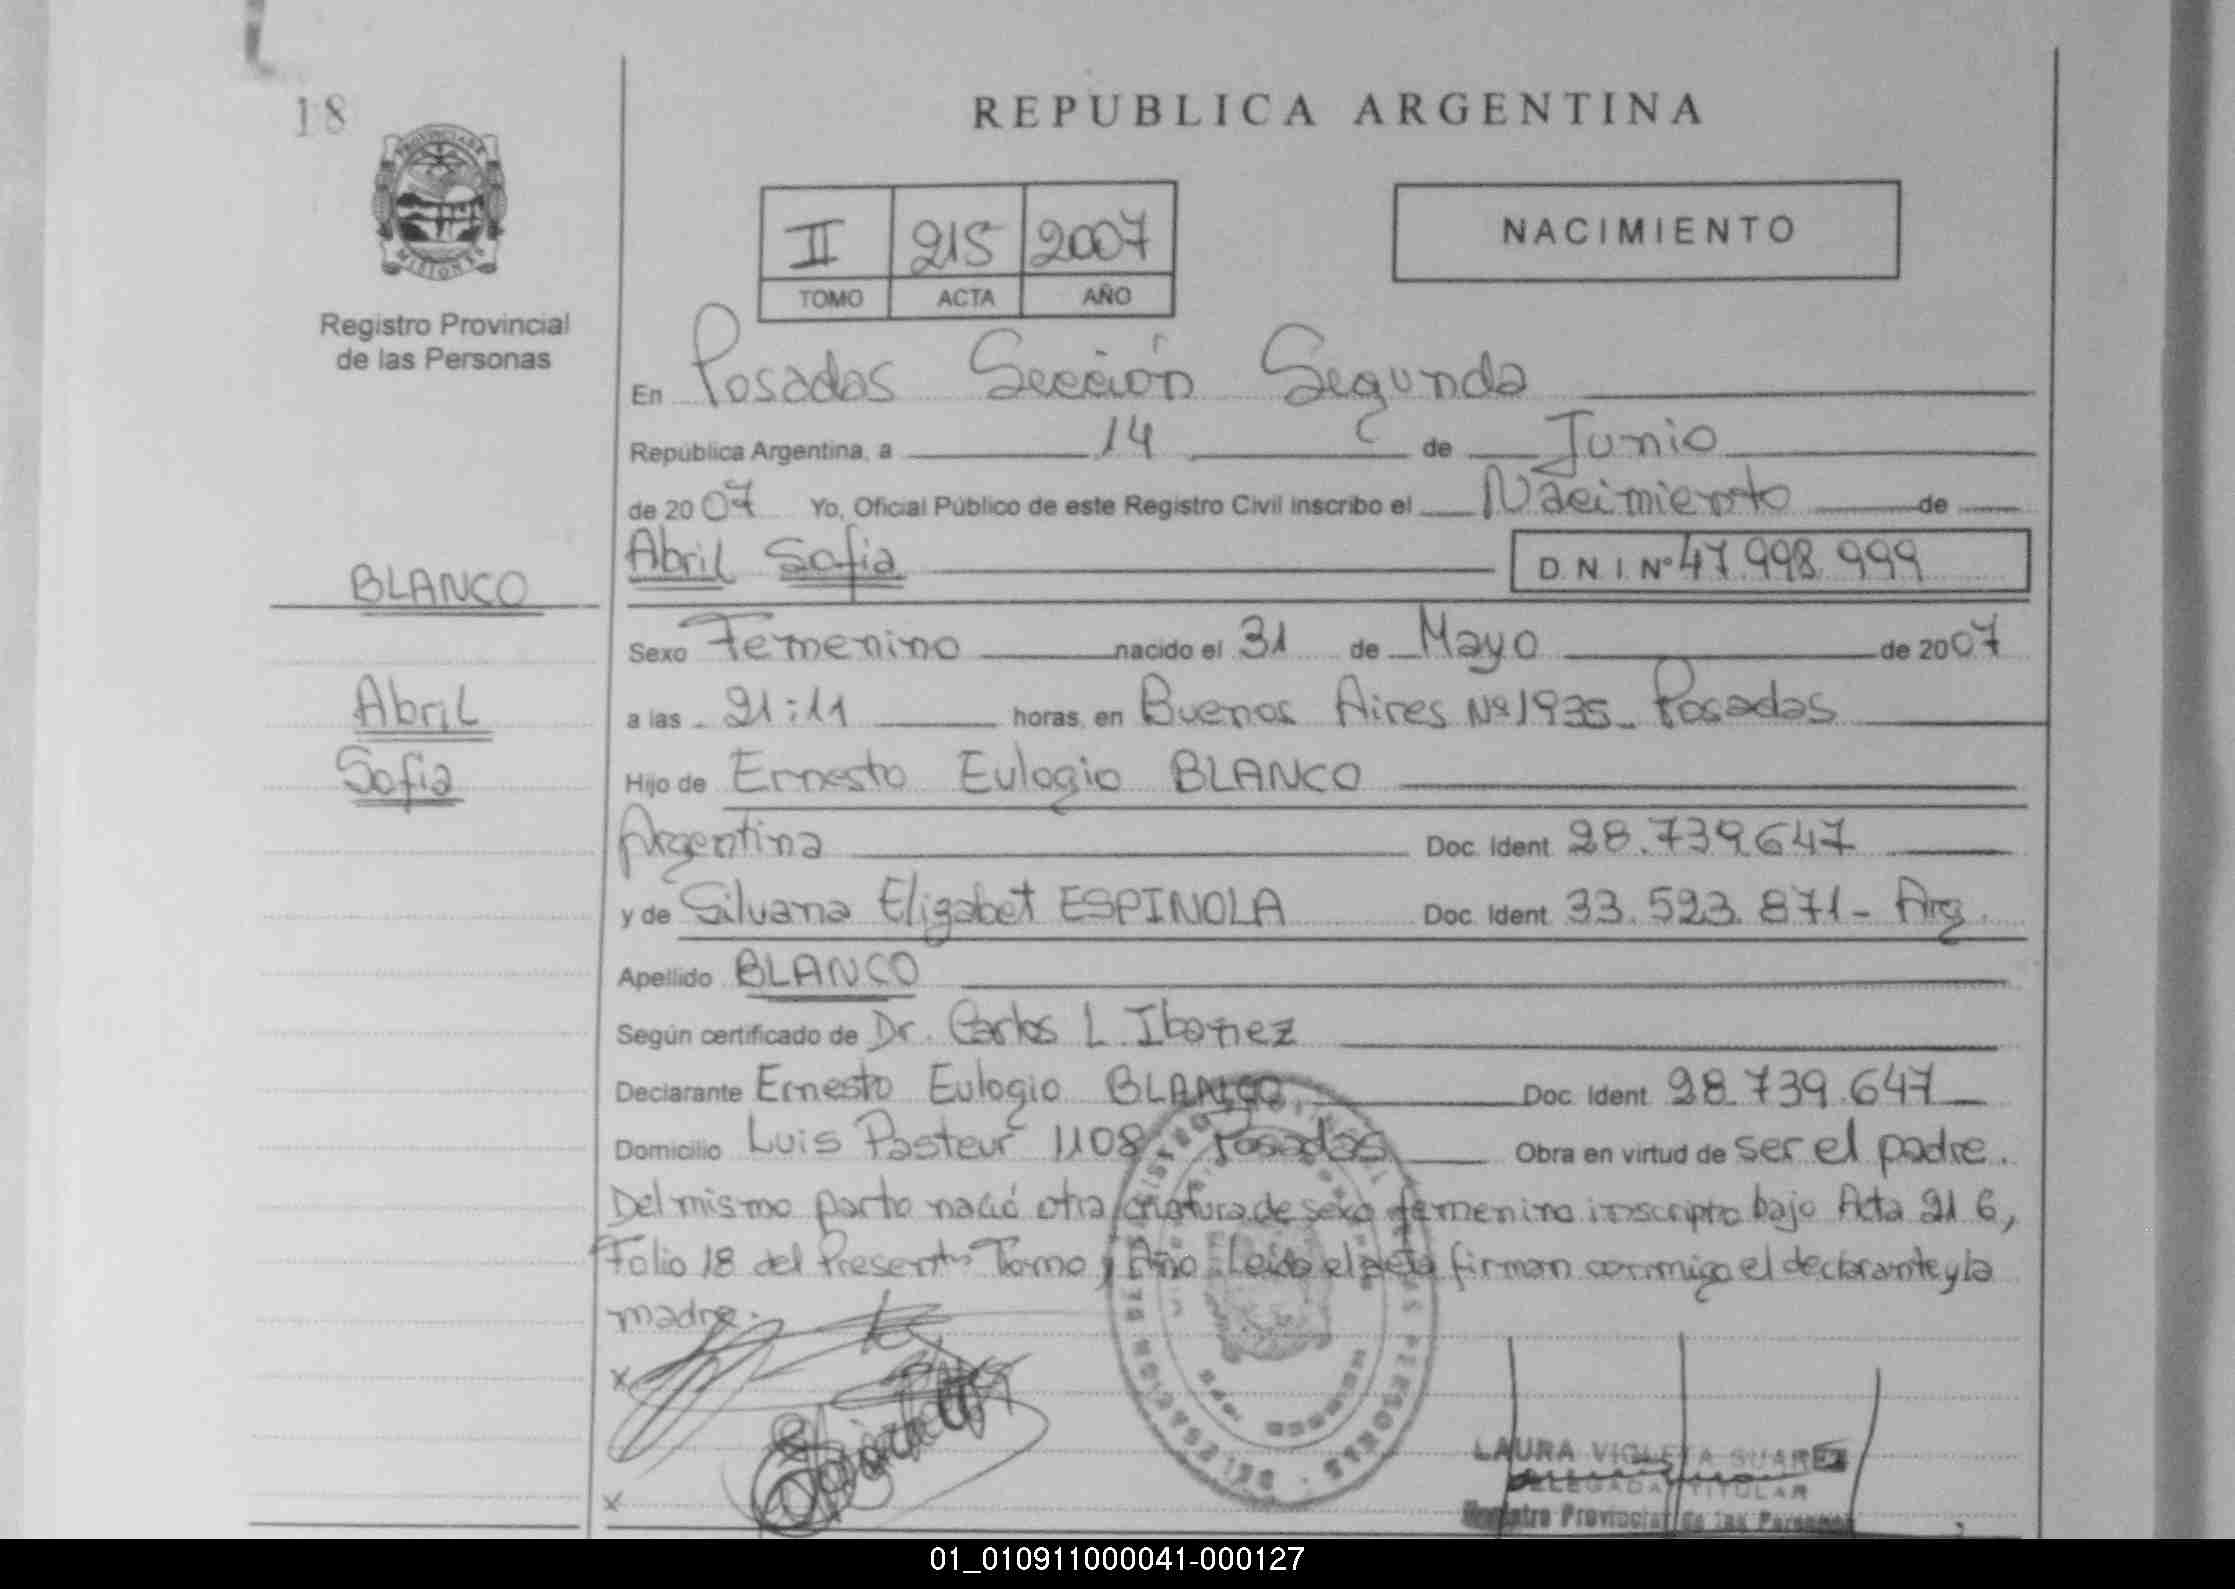 18
REPUBLICA ARGENTINA
PROVINCIA DE
MISIONES
Registro Provincial
de las Personas
II 215 2007
TOMO ACTA AÑO
NACIMIENTO
En Posadas Sección Segunda
República Argentina, a 14 de Junio
de 2007 Yo, Oficial Público de este Registro Civil inscribo el Nacimiento de
Abril Sofia D.N.I. Nº 47.998.999
BLANCO
Sexo Femenino nacido el 31 de Mayo de 2007
Abril
a las 21:11 horas, en Buenos Aires Nº 1935 - Posadas
Sofia
Hijo de Ernesto Eulogio BLANCO
Argentina Doc. Ident. 28.739.647
y de Silvana Elizabet ESPINOLA Doc. Ident. 33.523.871 - Arg.
Apellido BLANCO
Según certificado de Dr. Carlos L. Ibañez
Declarante Ernesto Eulogio BLANCO Doc. Ident. 28.739.647
Domicilio Luis Pasteur 1108 Posadas Obra en virtud de ser el padre.
Del mismo parto nació otra criatura de sexo femenino inscripto bajo Acta 216,
Folio 18 del Presente Tomo y Año Leída el acta firman conmigo el declarante y la
madre.
x
x
LAURA VIOLETA SUAREZ
DELEGADA TITULAR
Registro Provincial de las Personas
01_010911000041-000127